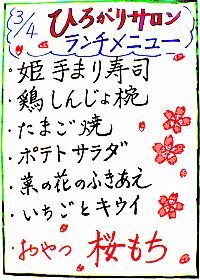 3/4 ひろがりサロン
ランチメニュー
・姫手まり寿司
・鶏しんじょ椀
・たまご焼
・ポテトサラダ
・菜の花のふきあえ
・いちごとキウイ
・おやつ 桜もち